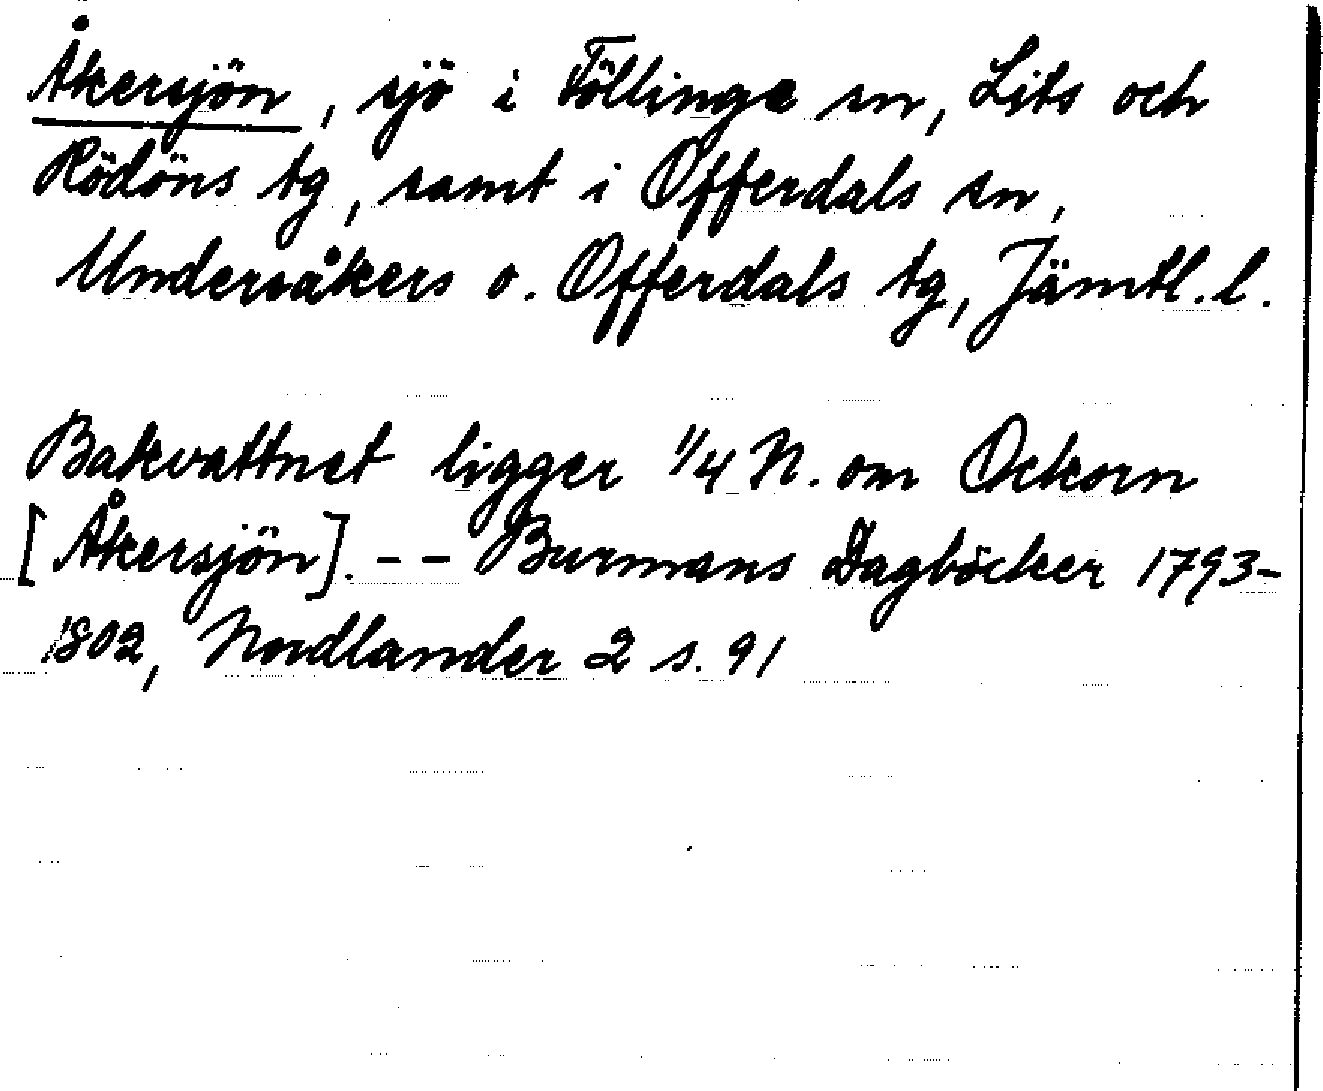 Åkersjön, sjö i Föllinge sn, Lits och
Rödöns tg, samt i Offerdals sn,
Undersåkers o. Offerdals tg, Jämtl. l.
Bakvattnet ligger 1/4 N. om Ockorn
[Åkersjön]. - - Burmans Dagböcker 1793-
1802, Nordlander 2 s. 91